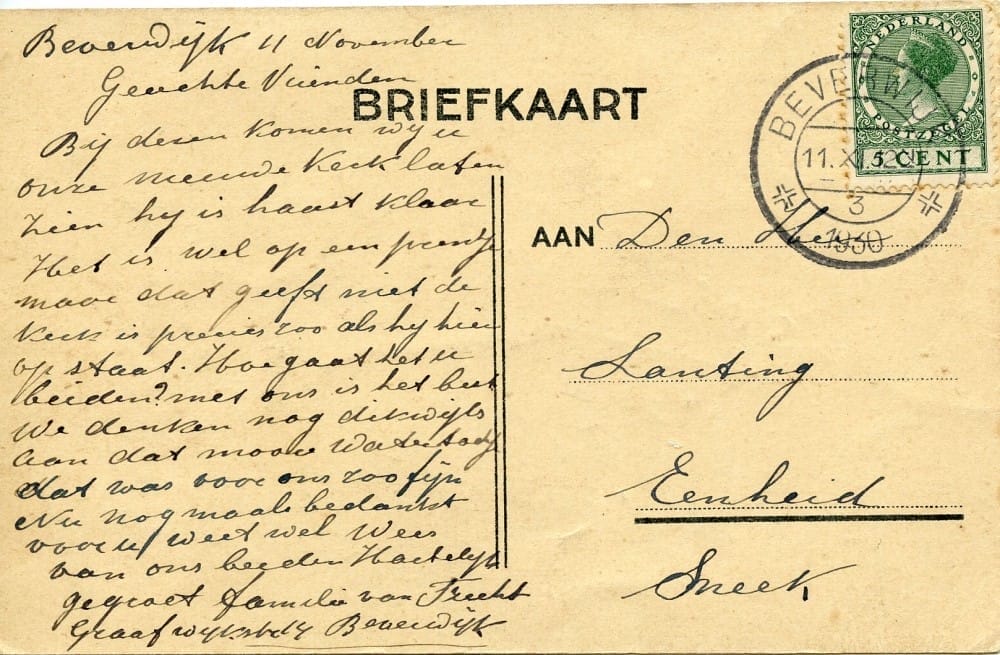 Beverwijk 11 November
Geachte Vrienden
Bij desen komen wij u
onze nieuwe kerk laten
zien hij is haast klaar
Het is wel op een prentje
maar dat geeft niet de
kerk is precies zoo als hij hier
op staat. Hoe gaat het u
beiden? met ons is het best
We denken nog dikwijls
aan dat mooie
dat was voor ons zoo fijn
Nu nog maals bedankt
voor u weet wel Wees
van ons beiden Hartelijk
gegroet familie van Trecht
Beverwijk
BRIEFKAART
NEDERLAND
POSTZEGEL
5 CENT
BEVERWIJK
11.XI.
3
1930
AAN Den Heer
Lanting
Eenheid
Sneek